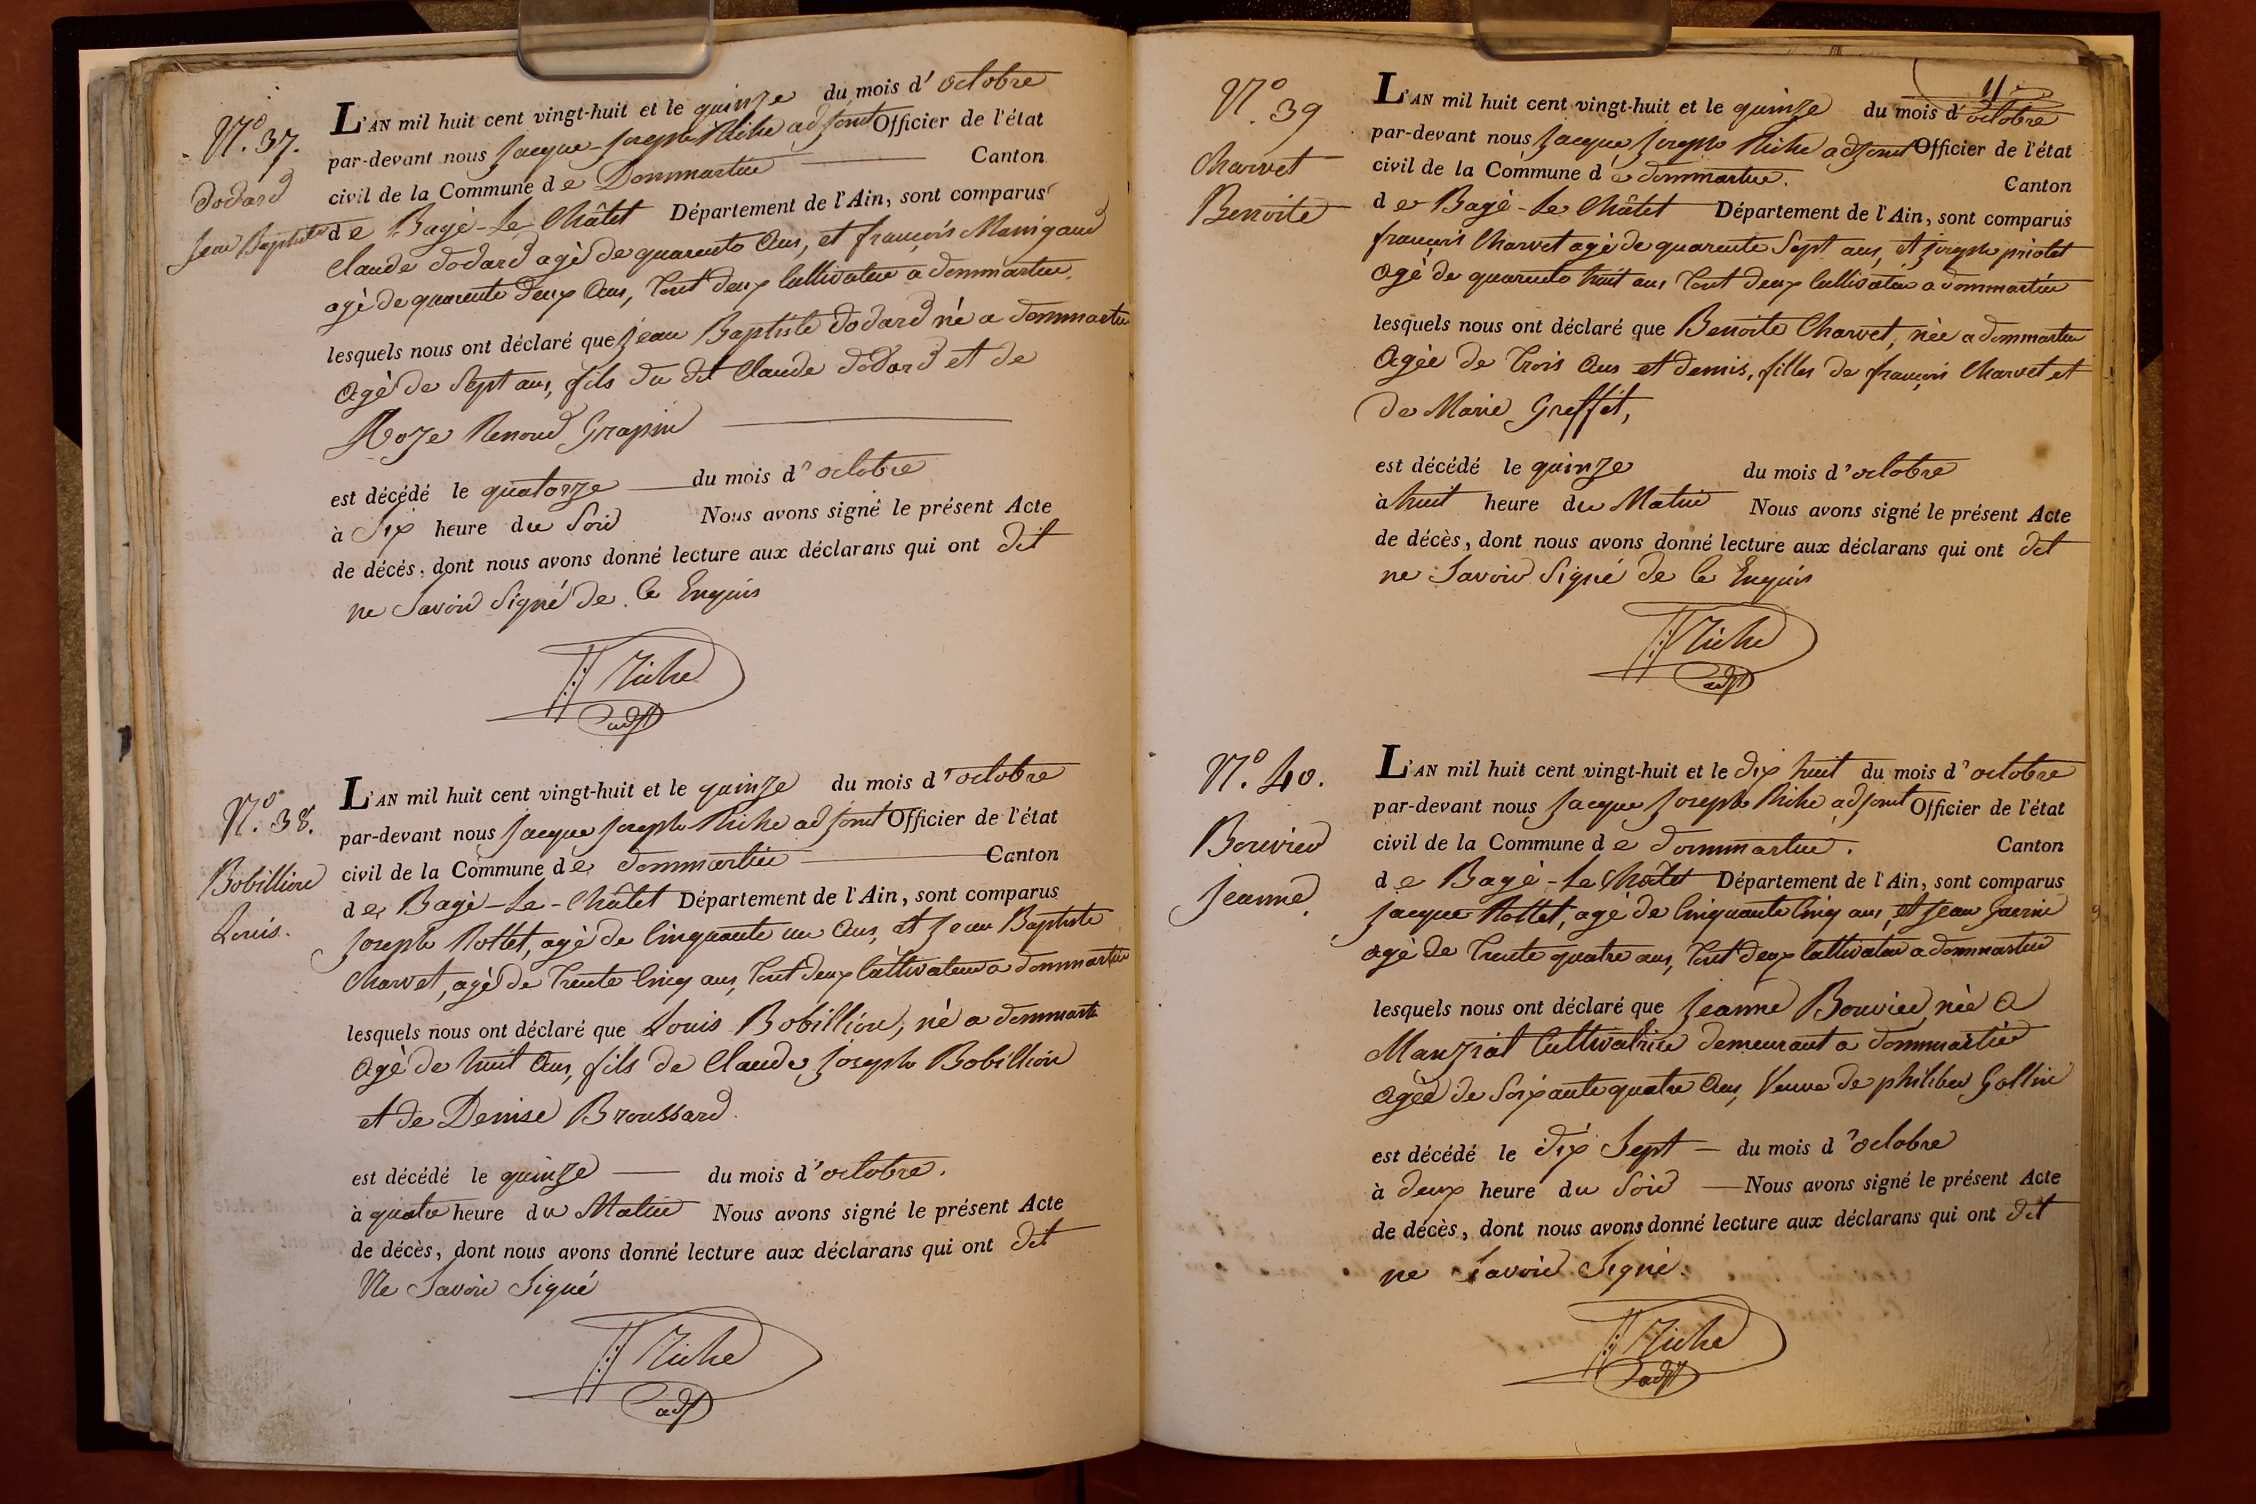 N.° 37.
Dodard
Jean Baptiste
L'AN mil huit cent vingt-huit et le quinze du mois d' octobre
par-devant nous Jacque Joseph Riche adjoint Officier de l'état
civil de la Commune de Dommartin Canton
de Bagé-Le Châtel Département de l'Ain, sont comparus
Claude Dodard agé de quarente Ans, et françois Manigaud
agé de quarente deux Ans, tout deux Cultivateur a dommartin.
lesquels nous ont déclaré que Jean Baptiste Dodard né a dommartin
Agé de Sept ans, fils du dit Claude Dodard et de
Roze Renoud Grapin
est décédé le quatorze du mois d' octobre
à Six heure du Soir Nous avons signé le présent Acte
de décés, dont nous avons donné lecture aux déclarans qui ont dit
ne Savoir Signé de Ce Enquis
JJ Riche
adjt
N.° 38.
Bobillion
Louis.
L'AN mil huit cent vingt-huit et le quinze du mois d' octobre
par-devant nous Jacque Joseph Riche adjoint Officier de l'état
civil de la Commune de dommartin Canton
de Bagé-Le-Châtel Département de l'Ain, sont comparus
Joseph Rollet, agé de Cinquante un Ans, et Jean Baptiste
Charvet, agé de Trente Cinq ans, tout deux Cultivateur a dommartin
lesquels nous ont déclaré que Louis Bobillion, né a dommart
Agé de huit Ans, fils de Claude Joseph Bobillion
et de Denise Broussard.
est décédé le quinze du mois d' octobre.
à quatre heure du Matin Nous avons signé le présent Acte
de décès, dont nous avons donné lecture aux déclarans qui ont dit
Ne Savoir Signé
JJ Riche
adjt
11
N.° 39
Charvet
Benoite
L'AN mil huit cent vingt-huit et le quinze du mois d' octobre
par-devant nous Jacque Joseph Riche adjoint Officier de l'état
civil de la Commune de dommartin. Canton
de Bagé-Le Châtel Département de l'Ain, sont comparus
françois Charvet agé de quarente Sept ans, et Joseph priolet
Agé de quarente huit ans tout deux Cultivateur a dommartin
lesquels nous ont déclaré que Benoite Charvet, née a dommartin
Agée de trois Ans et demis, filles de françois Charvet et
de Marie Greffet,
est décédé le quinze du mois d' octobre
à huit heure du Matin Nous avons signé le présent Acte
de décès, dont nous avons donné lecture aux déclarans qui ont dit
ne Savoir Signé de Ce Enquis
JJ Riche
adjt
N.° 40.
Bouvier
Jeanne
L'AN mil huit cent vingt-huit et le dix huit du mois d' octobre
par-devant nous Jacque Joseph Riche adjoint Officier de l'état
civil de la Commune de dommartin. Canton
de Bagé-Le Châtel Département de l'Ain, sont comparus
Jacque Rollet, agé de Cinquante Cinq ans, et Jean
agé de Trente quatre ans, tout deux Cultivateur a dommartin
lesquels nous ont déclaré que Jeanne Bouvier, née a
Manziat Cultivatrice demeurant a dommartin
agée de Soixante quatre Ans, Veuve de philiber Gollin
est décédé le dix Sept du mois d' octobre
à deux heure du Soir Nous avons signé le présent Acte
de décès, dont nous avons donné lecture aux déclarans qui ont dit
ne Savoir Signé.
JJ Riche
adjt